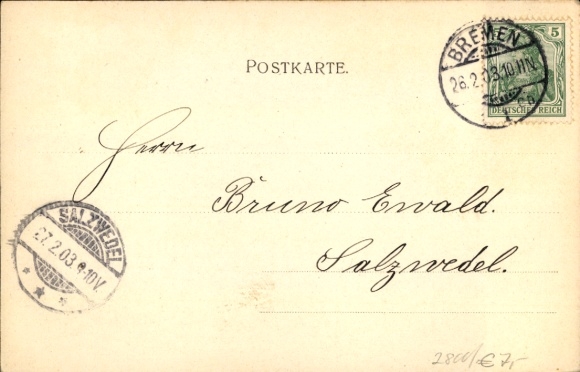 POSTKARTE.
BREMEN
26.2.03.10-11N.
1
5
DEUTSCHES REICH
Herrn
Bruno Ewald.
Salzwedel.
SALZWEDEL
27.2.03.
10V.
€ 7,-